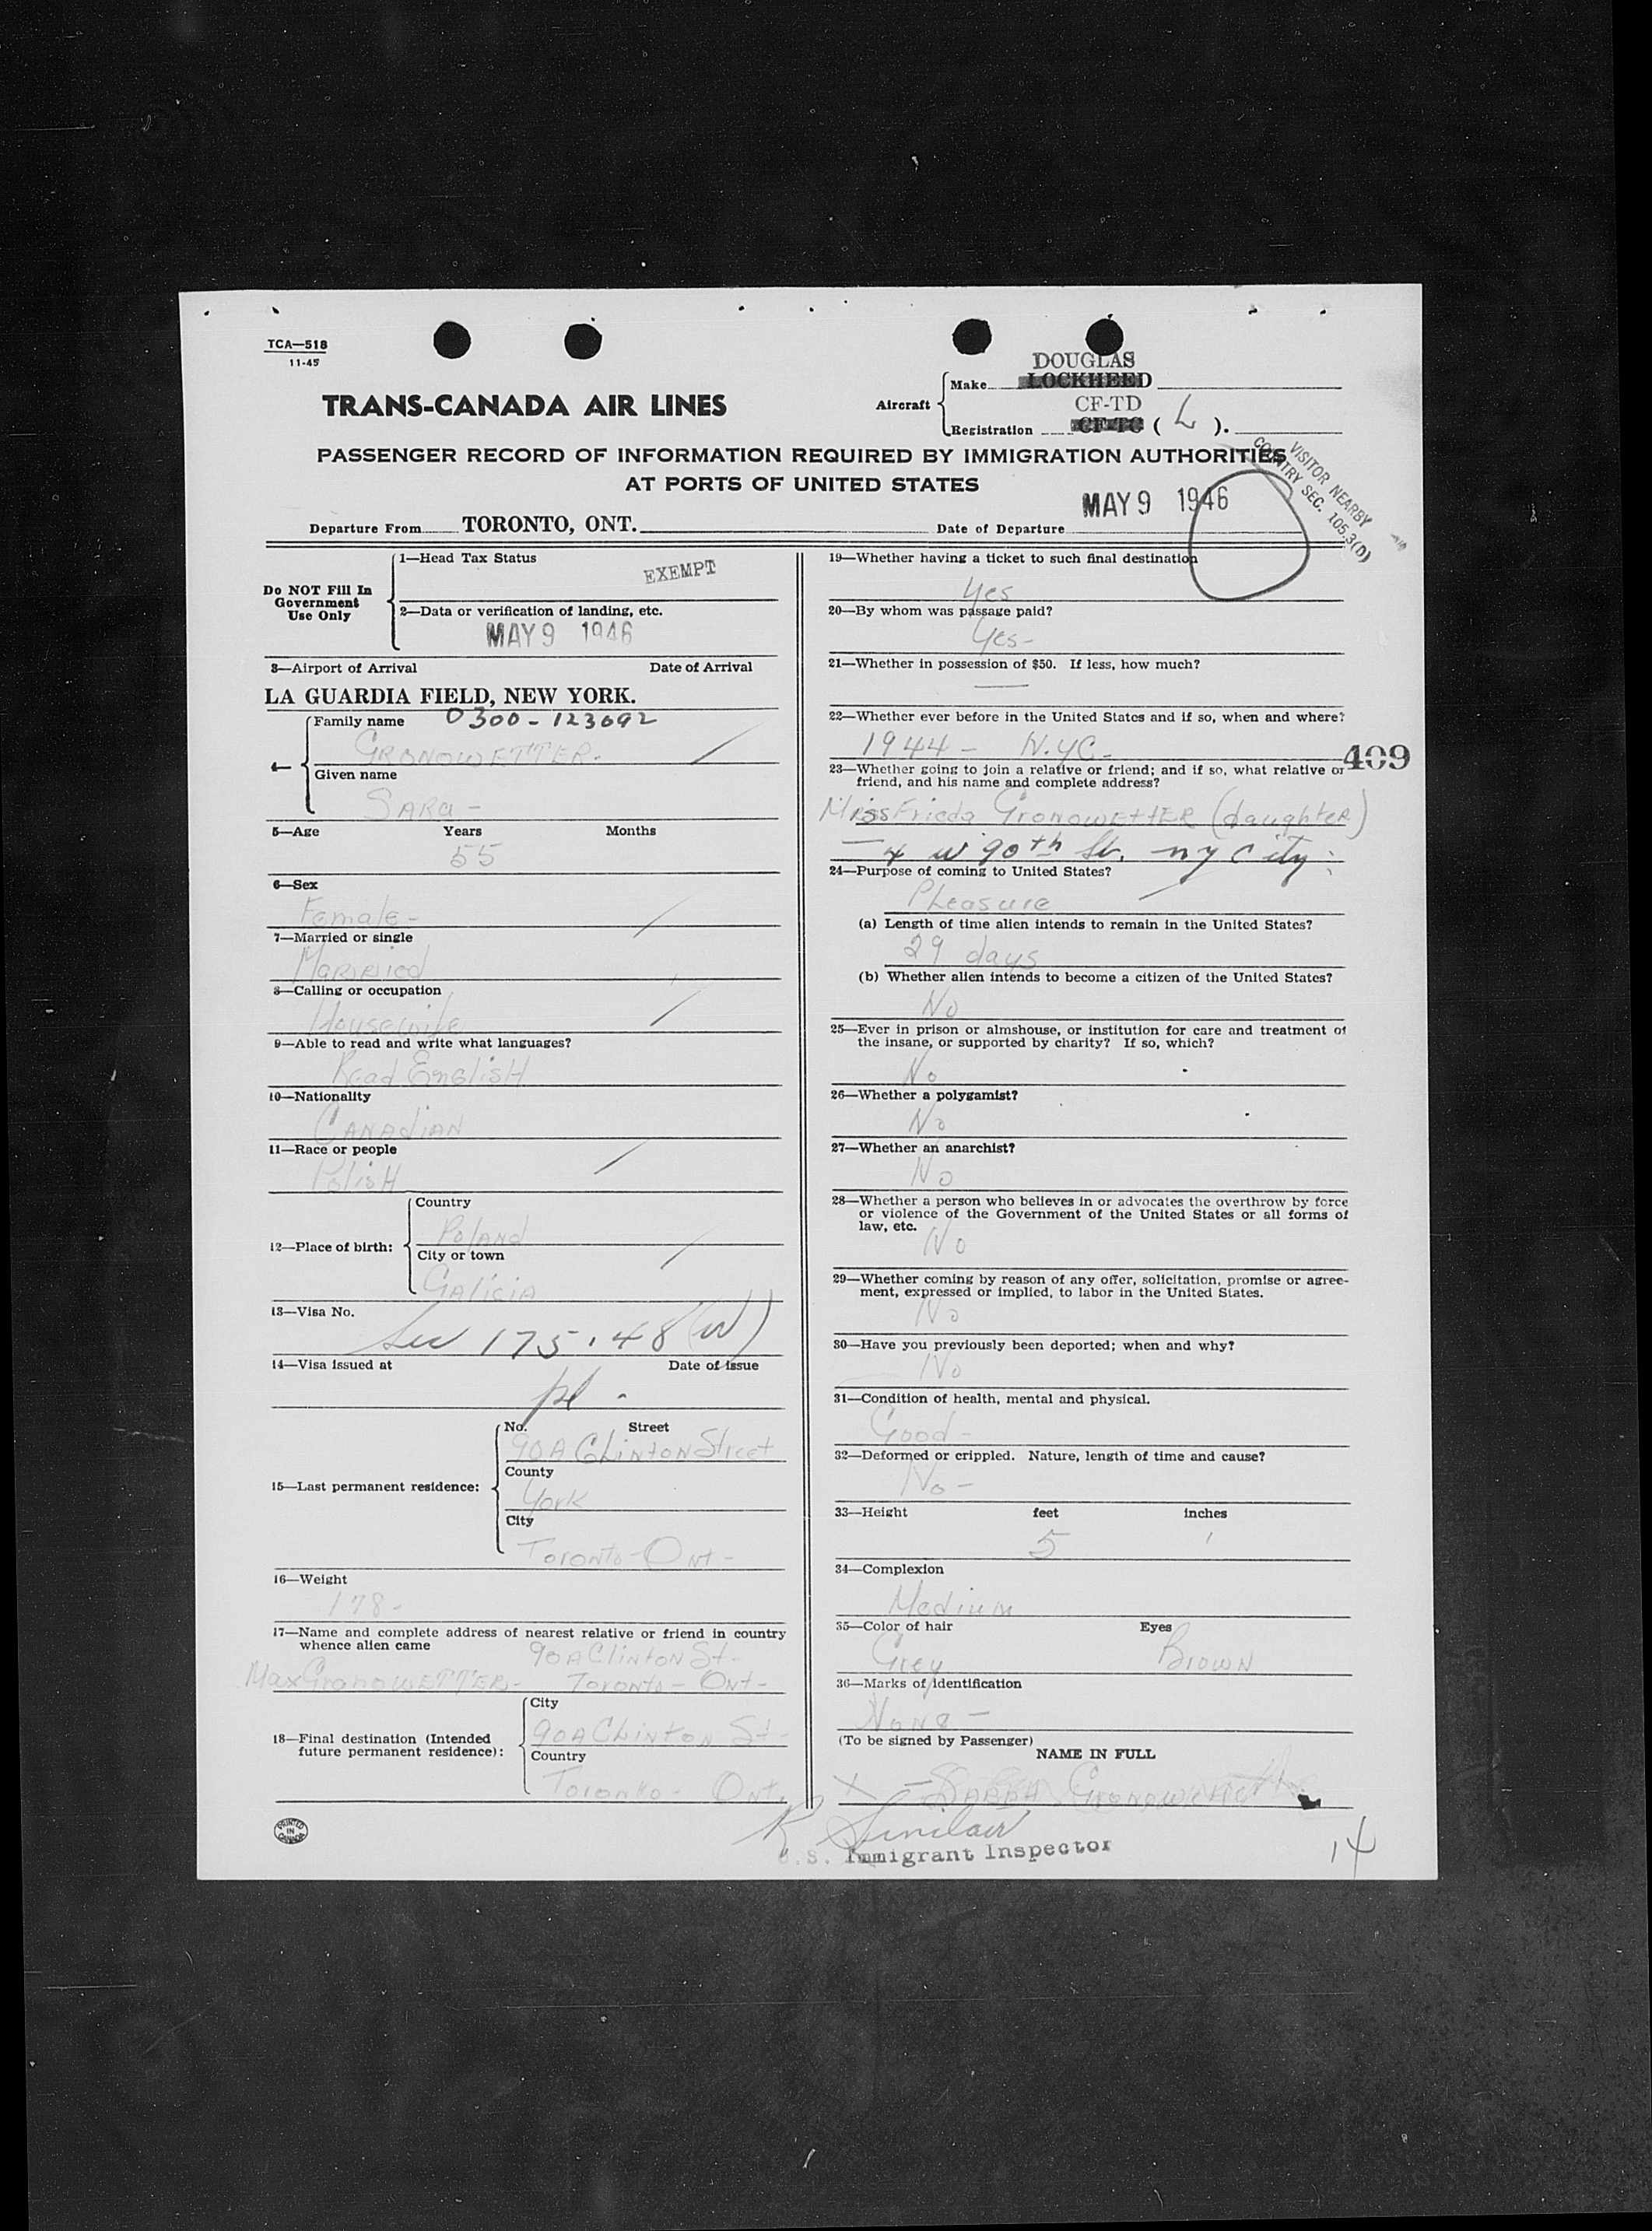 TCA—518
11-45
TRANS-CANADA AIR LINES
Aircraft
Make
DOUGLAS
LOCKHEED
Registration
CF-TD
CF-TC ( L ).
PASSENGER RECORD OF INFORMATION REQUIRED BY IMMIGRATION AUTHORITIES
AT PORTS OF UNITED STATES
VISITOR NEARBY
COUNTRY SEC. 105.3(D)
Departure From TORONTO, ONT.
Date of Departure MAY 9 1946
Do NOT Fill In
Government
Use Only
1—Head Tax Status
EXEMPT
2—Data or verification of landing, etc.
MAY 9 1946
3—Airport of Arrival Date of Arrival
LA GUARDIA FIELD, NEW YORK.
Family name 0300-123692
GRONOWETTER.
Given name
SARA -
5—Age Years Months
55
6—Sex
Female -
7—Married or single
Married
8—Calling or occupation
Housewife
9—Able to read and write what languages?
Read English
10—Nationality
CANADIAN
11—Race or people
Polish
12—Place of birth:
Country
Poland
City or town
Galicia
13—Visa No.
Sec 175.48 (W)
14—Visa issued at Date of issue
15—Last permanent residence:
No. Street
90A Clinton Street
County
York
City
Toronto - Ont -
16—Weight
178 -
17—Name and complete address of nearest relative or friend in country
whence alien came
90A Clinton St -
Max Gronowetter - Toronto - Ont -
18—Final destination (Intended
future permanent residence):
City
90A Clinton St -
Country
Toronto - Ont.
PRINTED
IN
CANADA
19—Whether having a ticket to such final destination
Yes
20—By whom was passage paid?
Yes -
21—Whether in possession of $50. If less, how much?
—
22—Whether ever before in the United States and if so, when and where?
1944 - N.Y.C. -
409
23—Whether going to join a relative or friend; and if so, what relative or
friend, and his name and complete address?
Miss Frieda Gronowetter (daughter)
— 4 W 90th St. NY City.
24—Purpose of coming to United States?
Pleasure
(a) Length of time alien intends to remain in the United States?
29 days
(b) Whether alien intends to become a citizen of the United States?
No
25—Ever in prison or almshouse, or institution for care and treatment of
the insane, or supported by charity? If so, which?
No
26—Whether a polygamist?
No
27—Whether an anarchist?
No
28—Whether a person who believes in or advocates the overthrow by force
or violence of the Government of the United States or all forms of
law, etc.
No
29—Whether coming by reason of any offer, solicitation, promise or agree-
ment, expressed or implied, to labor in the United States.
No
30—Have you previously been deported; when and why?
No
31—Condition of health, mental and physical.
Good -
32—Deformed or crippled. Nature, length of time and cause?
No -
33—Height feet inches
5 1
34—Complexion
Medium
35—Color of hair Eyes
Grey Brown
36—Marks of identification
None -
(To be signed by Passenger)
NAME IN FULL
X
R Sinclair
U.S. Immigrant Inspector
14